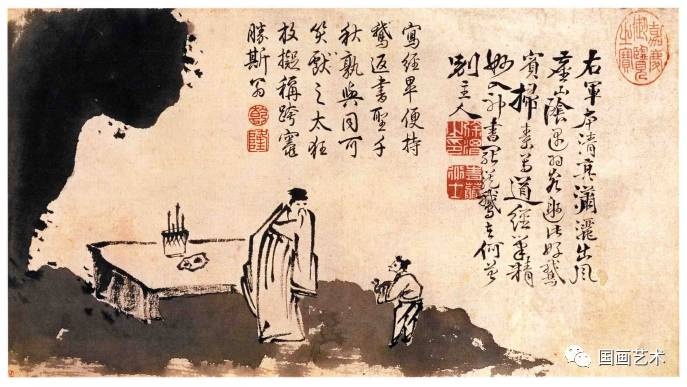 嘉慶御覽之寶
右軍本清真瀟灑出風
塵山陰遇羽客此好鵝
賓掃素寫道經筆精
妙入神書罷籠鵝去何曾
別主人
寫經畢便持
鵝返書聖千
秋孰與同可
笑獻之太狂
放擬稱跨竈
勝斯翁
乾隆
国画艺术